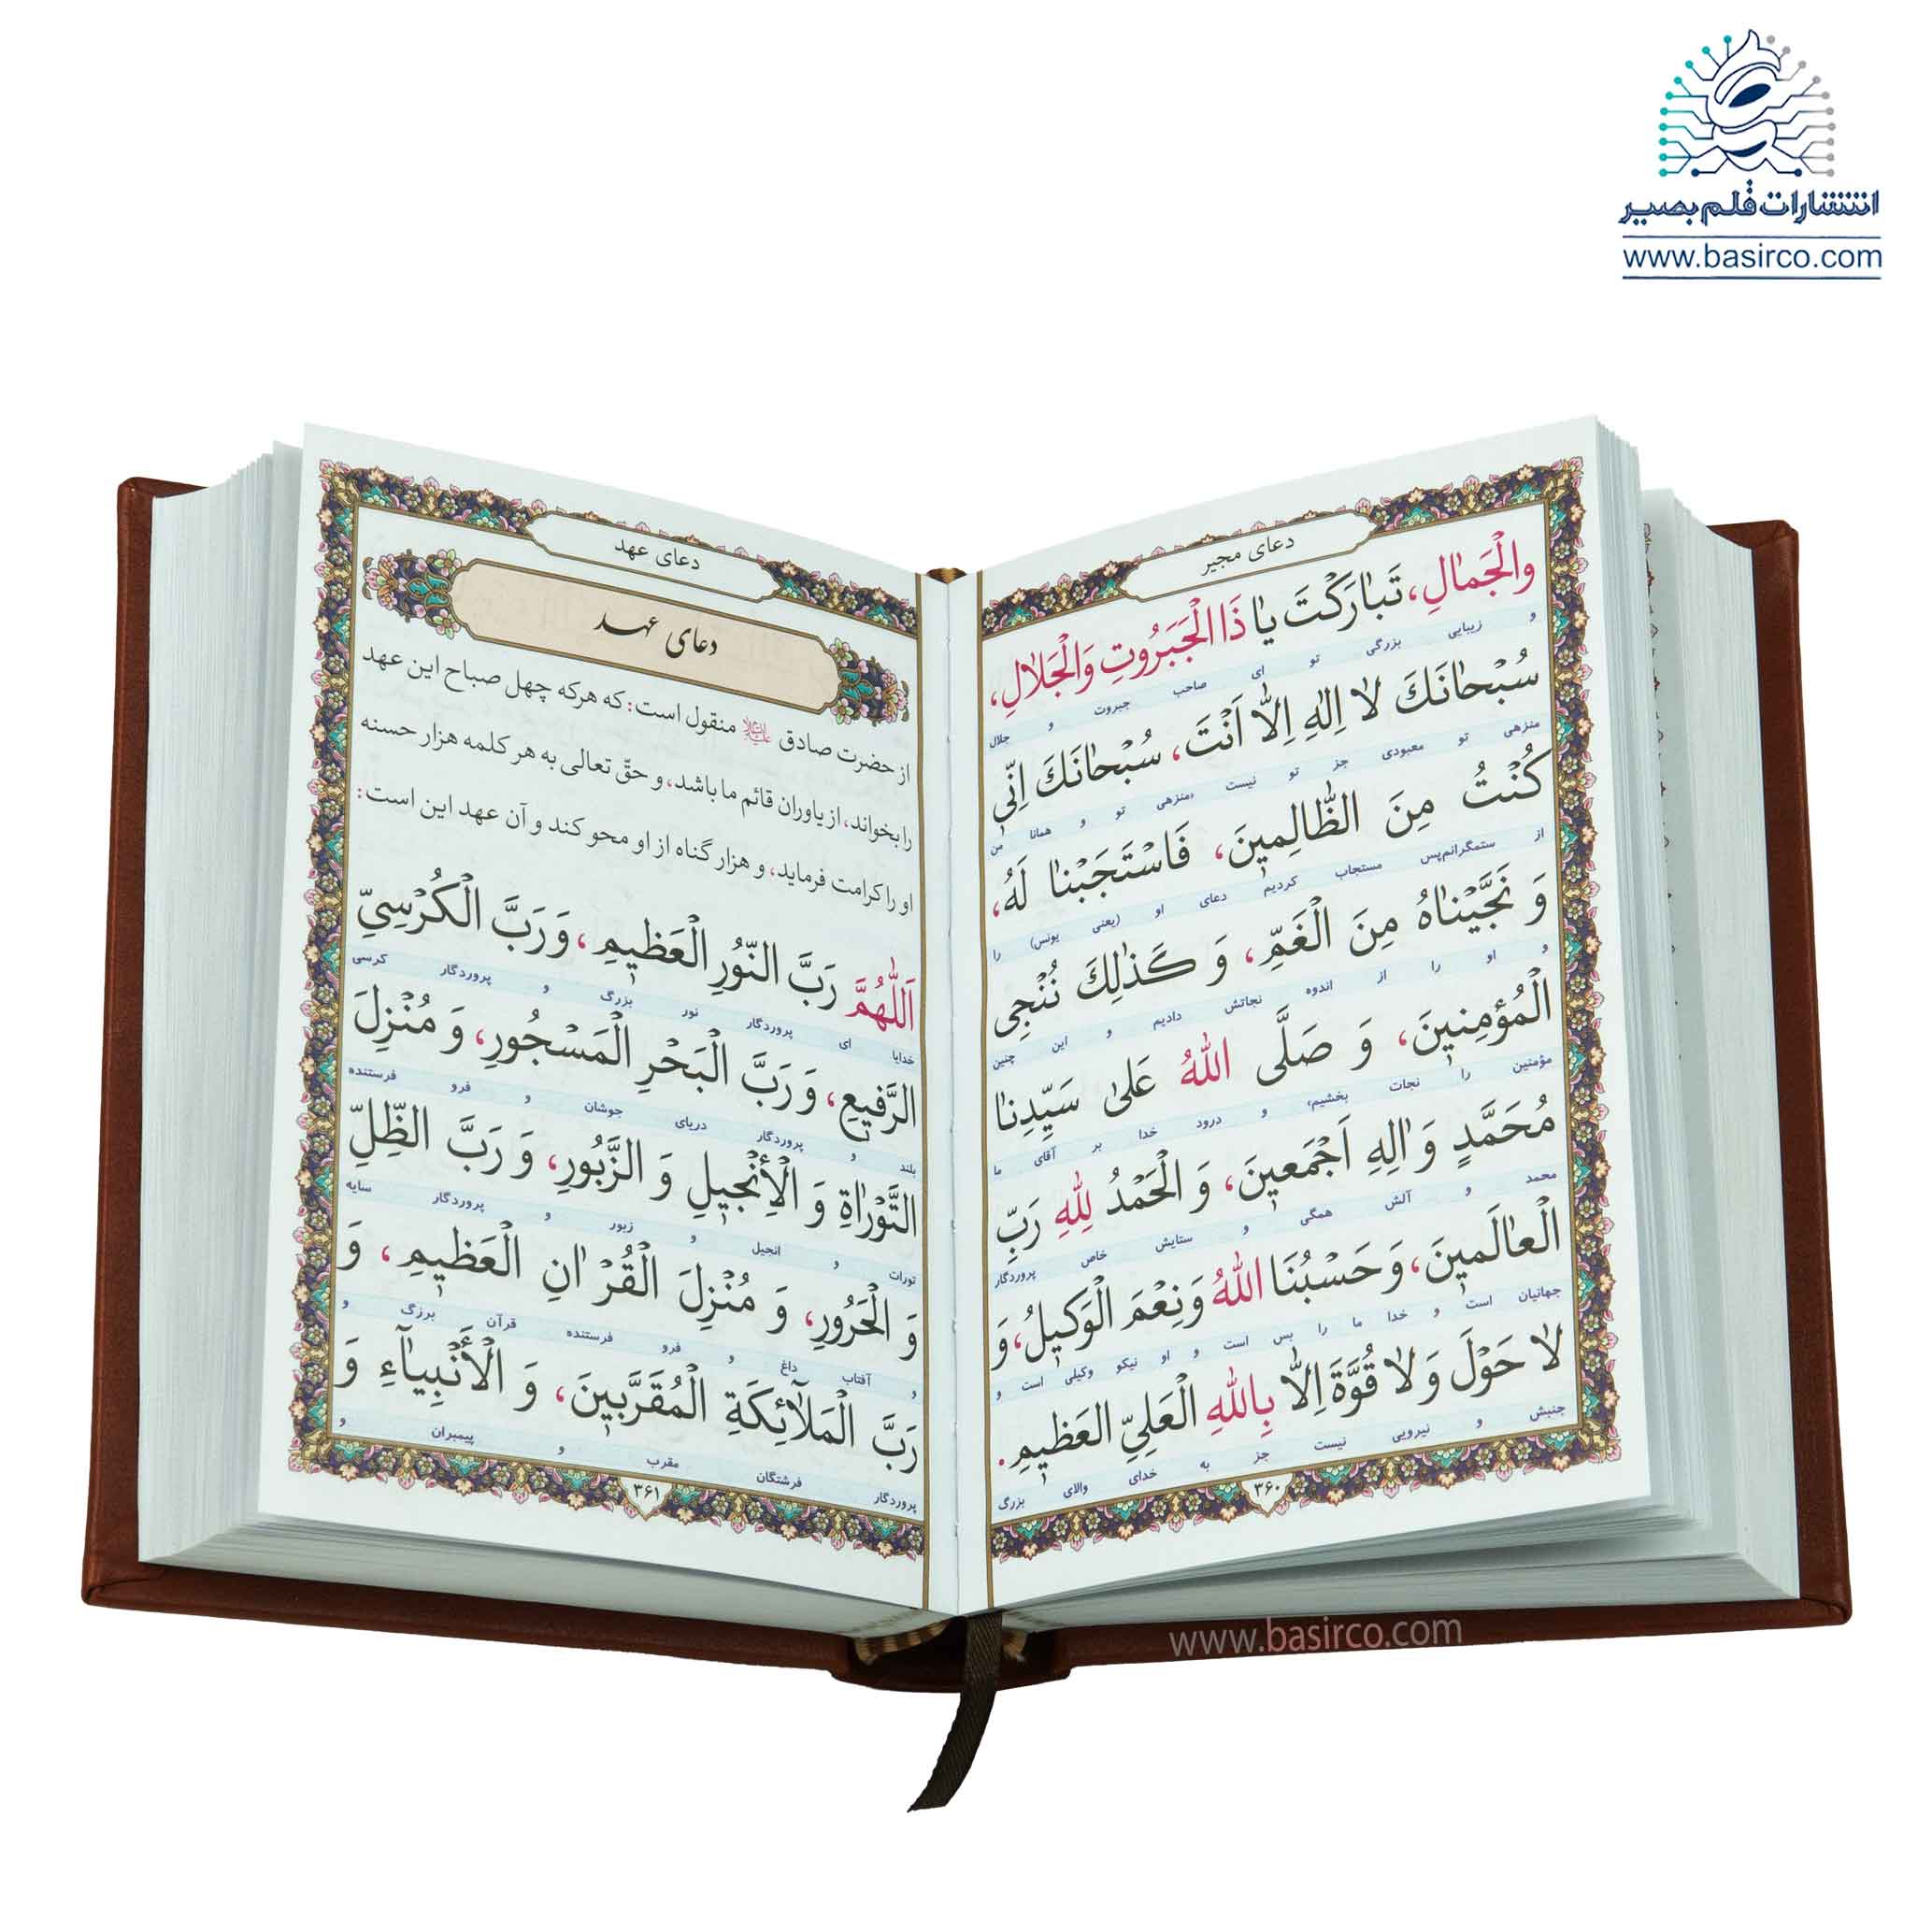 انتشارات قلم بصیر
www.basirco.com
دعای مجیر
والْجَمالِ، تَبارَكْتَ يا ذَا الْجَبَرُوتِ وَالْجَلالِ،
و زیبایی بزرگی تو ای صاحب جبروت و جلال
سُبْحانَكَ لا اِلهَ اِلّا اَنْتَ، سُبْحانَكَ اِنّى
منزهی تو معبودی جز تو نیست منزهی تو و همانا من
كُنْتُ مِنَ الظّالِمينَ، فَاسْتَجَبْنا لَهُ،
از ستمگرانم‌پس مستجاب کردیم دعای او (یعنی یونس) را
وَ نَجَّيْناهُ مِنَ الْغَمِّ، وَ كَذلِكَ نُنْجِى
و او را از اندوه نجاتش دادیم و این چنین
الْمُؤمِنينَ، وَ صَلَّى اللهُ عَلى سَيِّدِنا
مؤمنین را نجات بخشیم، و درود خدا بر آقای ما
مُحَمَّدٍ وَ الِهِ اَجْمَعينَ، وَ الْحَمْدُ لِلهِ رَبِّ
محمد و آلش همگی و ستایش خاص پروردگار
الْعالَمينَ، وَ حَسْبُنَا اللهُ وَ نِعْمَ الْوَكيلُ، وَ
جهانیان است و خدا ما را بس است و او نیکو وکیلی است و
لا حَوْلَ وَ لا قُوَّةَ اِلّا بِاللهِ الْعَلِيِّ الْعَظيمِ.
جنبش و نیرویی نیست جز به خدای والای بزرگ
۳۶۰
دعای عهد
دعای عهد
از حضرت صادق علیه‌السلام منقول است: که هرکه چهل صباح این عهد
را بخواند، از یاوران قائم ما باشد، و حقّ تعالی به هر کلمه هزار حسنه
او را کرامت فرماید، و هزار گناه از او محو کند و آن عهد این است:
اَللّهُمَّ رَبَّ النّورِ الْعَظيمِ، وَ رَبَّ الْكُرْسِيِّ
خدایا ای پروردگار نور بزرگ و پروردگار کرسی
الرَّفيعِ، وَ رَبَّ الْبَحْرِ الْمَسْجُورِ، وَ مُنْزِلَ
بلند و پروردگار دریای جوشان و فرو فرستنده
التَّوْراةِ وَ الْاِنْجيلِ وَ الزَّبُورِ، وَ رَبَّ الظِّلِّ
تورات و انجیل و زبور و پروردگار سایه
وَ الْحَرُورِ، وَ مُنْزِلَ الْقُرْانِ الْعَظيمِ، وَ
و آفتاب داغ و فرو فرستنده قرآن بزرگ و
رَبَّ الْمَلآئِكَةِ الْمُقَرَّبينَ، وَ الْأَنْبِيآءِ وَ
پروردگار فرشتگان مقرب و پیمبران و
۳۶۱
www.basirco.com